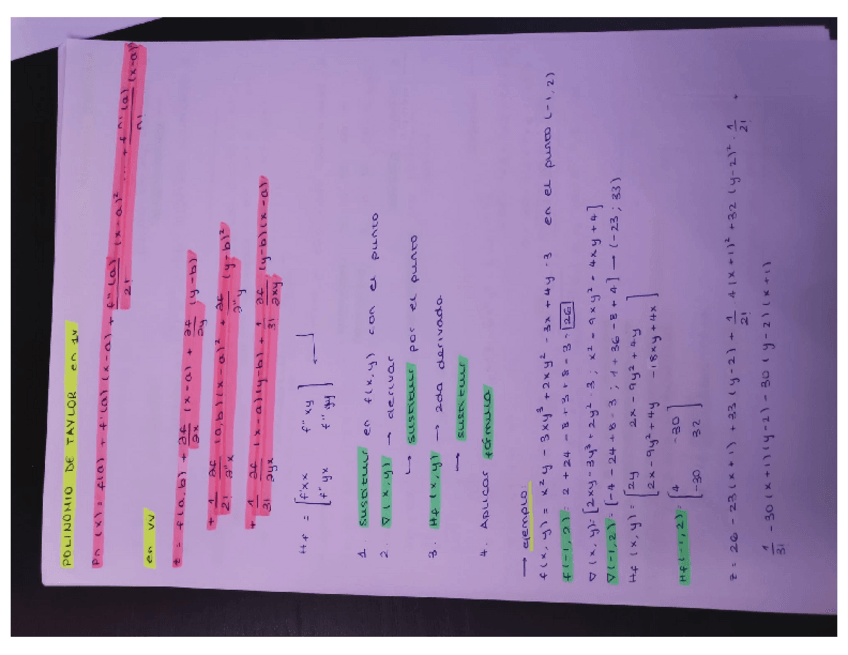 POLINOMIO DE TAYLOR en 1V
Pn(x) = f(a) + f'(a)(x-a) + f''(a)/2! (x-a)² ... + fⁿ(a)/n! (x-a)
en VV
z = f(a,b) + ∂f/∂x (x-a) + ∂f/∂y (y-b)
+ 1/2! ∂f/∂''x (a,b)(x-a)² + ∂f/∂''y (y-b)²
+ 1/3! ∂f/∂yx (x-a)(y-b) + 1/3! ∂f/∂xy (y-b)(x-a)
Hf = [f''xx f''xy
f''yx f''yy]
1. sustituir en f(x,y) con el punto
2. ∇(x,y) → derivar
↳ sustituir por el punto
3. Hf(x,y) → 2da derivada
↳ sustituir
4. Aplicar fórmula
→ ejemplo
f(x,y) = x²y - 3xy³ + 2xy² - 3x + 4y - 3 en el punto (-1,2)
f(-1,2): 2 + 24 - 8 + 3 + 8 - 3 = 26
∇(x,y): [2xy - 3y³ + 2y² - 3 ; x² - 9xy² + 4xy + 4]
∇(-1,2): [-4 - 24 + 8 - 3 ; 1 + 36 - 8 + 4] → (-23 ; 33)
Hf(x,y) = [2y 2x - 9y² + 4y
2x - 9y² + 4y -18xy + 4x]
Hf(-1,2): [4 -30
-30 32]
z = 26 - 23(x+1) + 33(y-2) + 1/2! 4(x+1)² + 32(y-2)² · 1/2! +
1/3! -30(x+1)(y-2) - 30(y-2)(x+1)